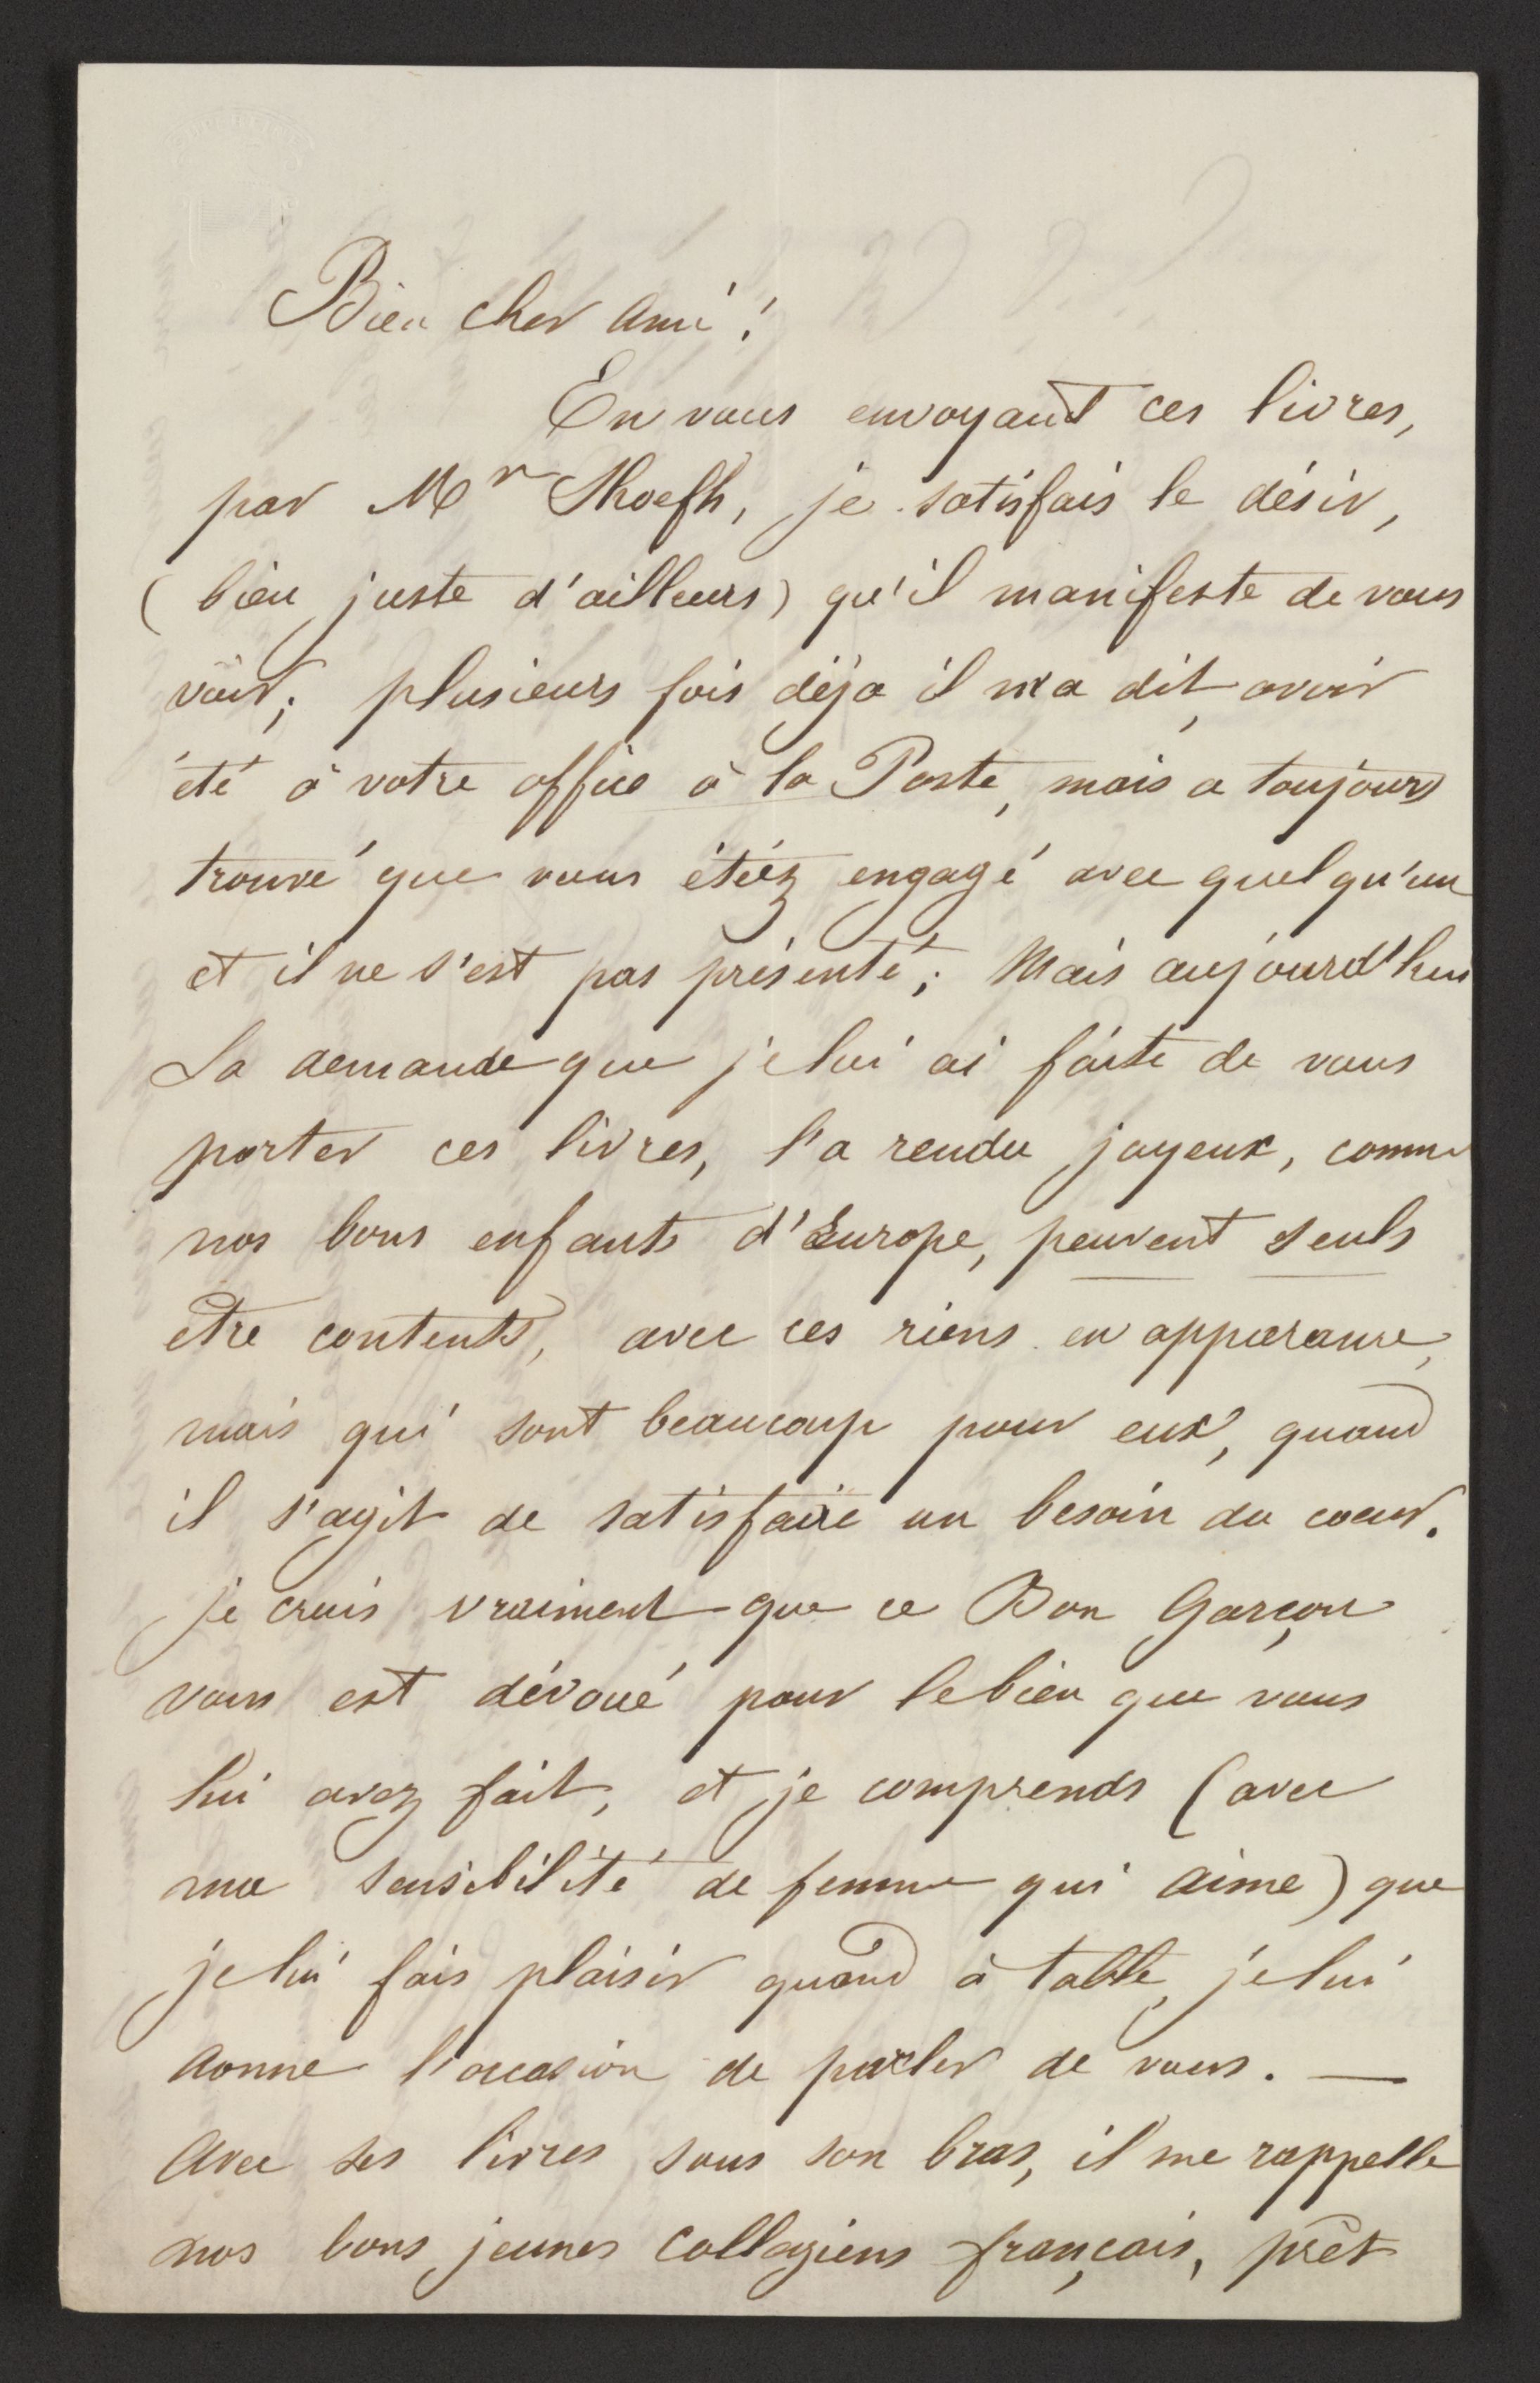 Bien cher Ami !
En vous envoyant ces livres,
par Mr je satisfais le désir,
( bien juste d'ailleurs) qu'il manifeste de vous
voir; plusieurs fois déja il m'a dit, avoir
été à votre office à la Poste, mais a toujours
trouvé que vous étiéz engagé avec quelqu'un
et il ne s'est pas présenté; Mais aujourd'hui
La demande que je lui ai faite de vous
porter ces livres, l'a rendu joyeux, comme
nos bons enfants d'Europe, peuvent seuls
être contents, avec ces riens en apparance,
mais qui sont beaucoup pour eux, quand
il s'agit de satisfaire un besoin du coeur.
je crois vraiment que ce Bon Garçon
vous est dévoué pour le bien que vous
lui avez fait, et je comprends (avec
ma sensibilité de femme qui aime) que
je lui fais plaisir quand à table, je lui
donne l'occasion de parler de vous. —
Avec ses livres sous son bras, il me rappelle
nos bons jeunes Collegiens français, prêt